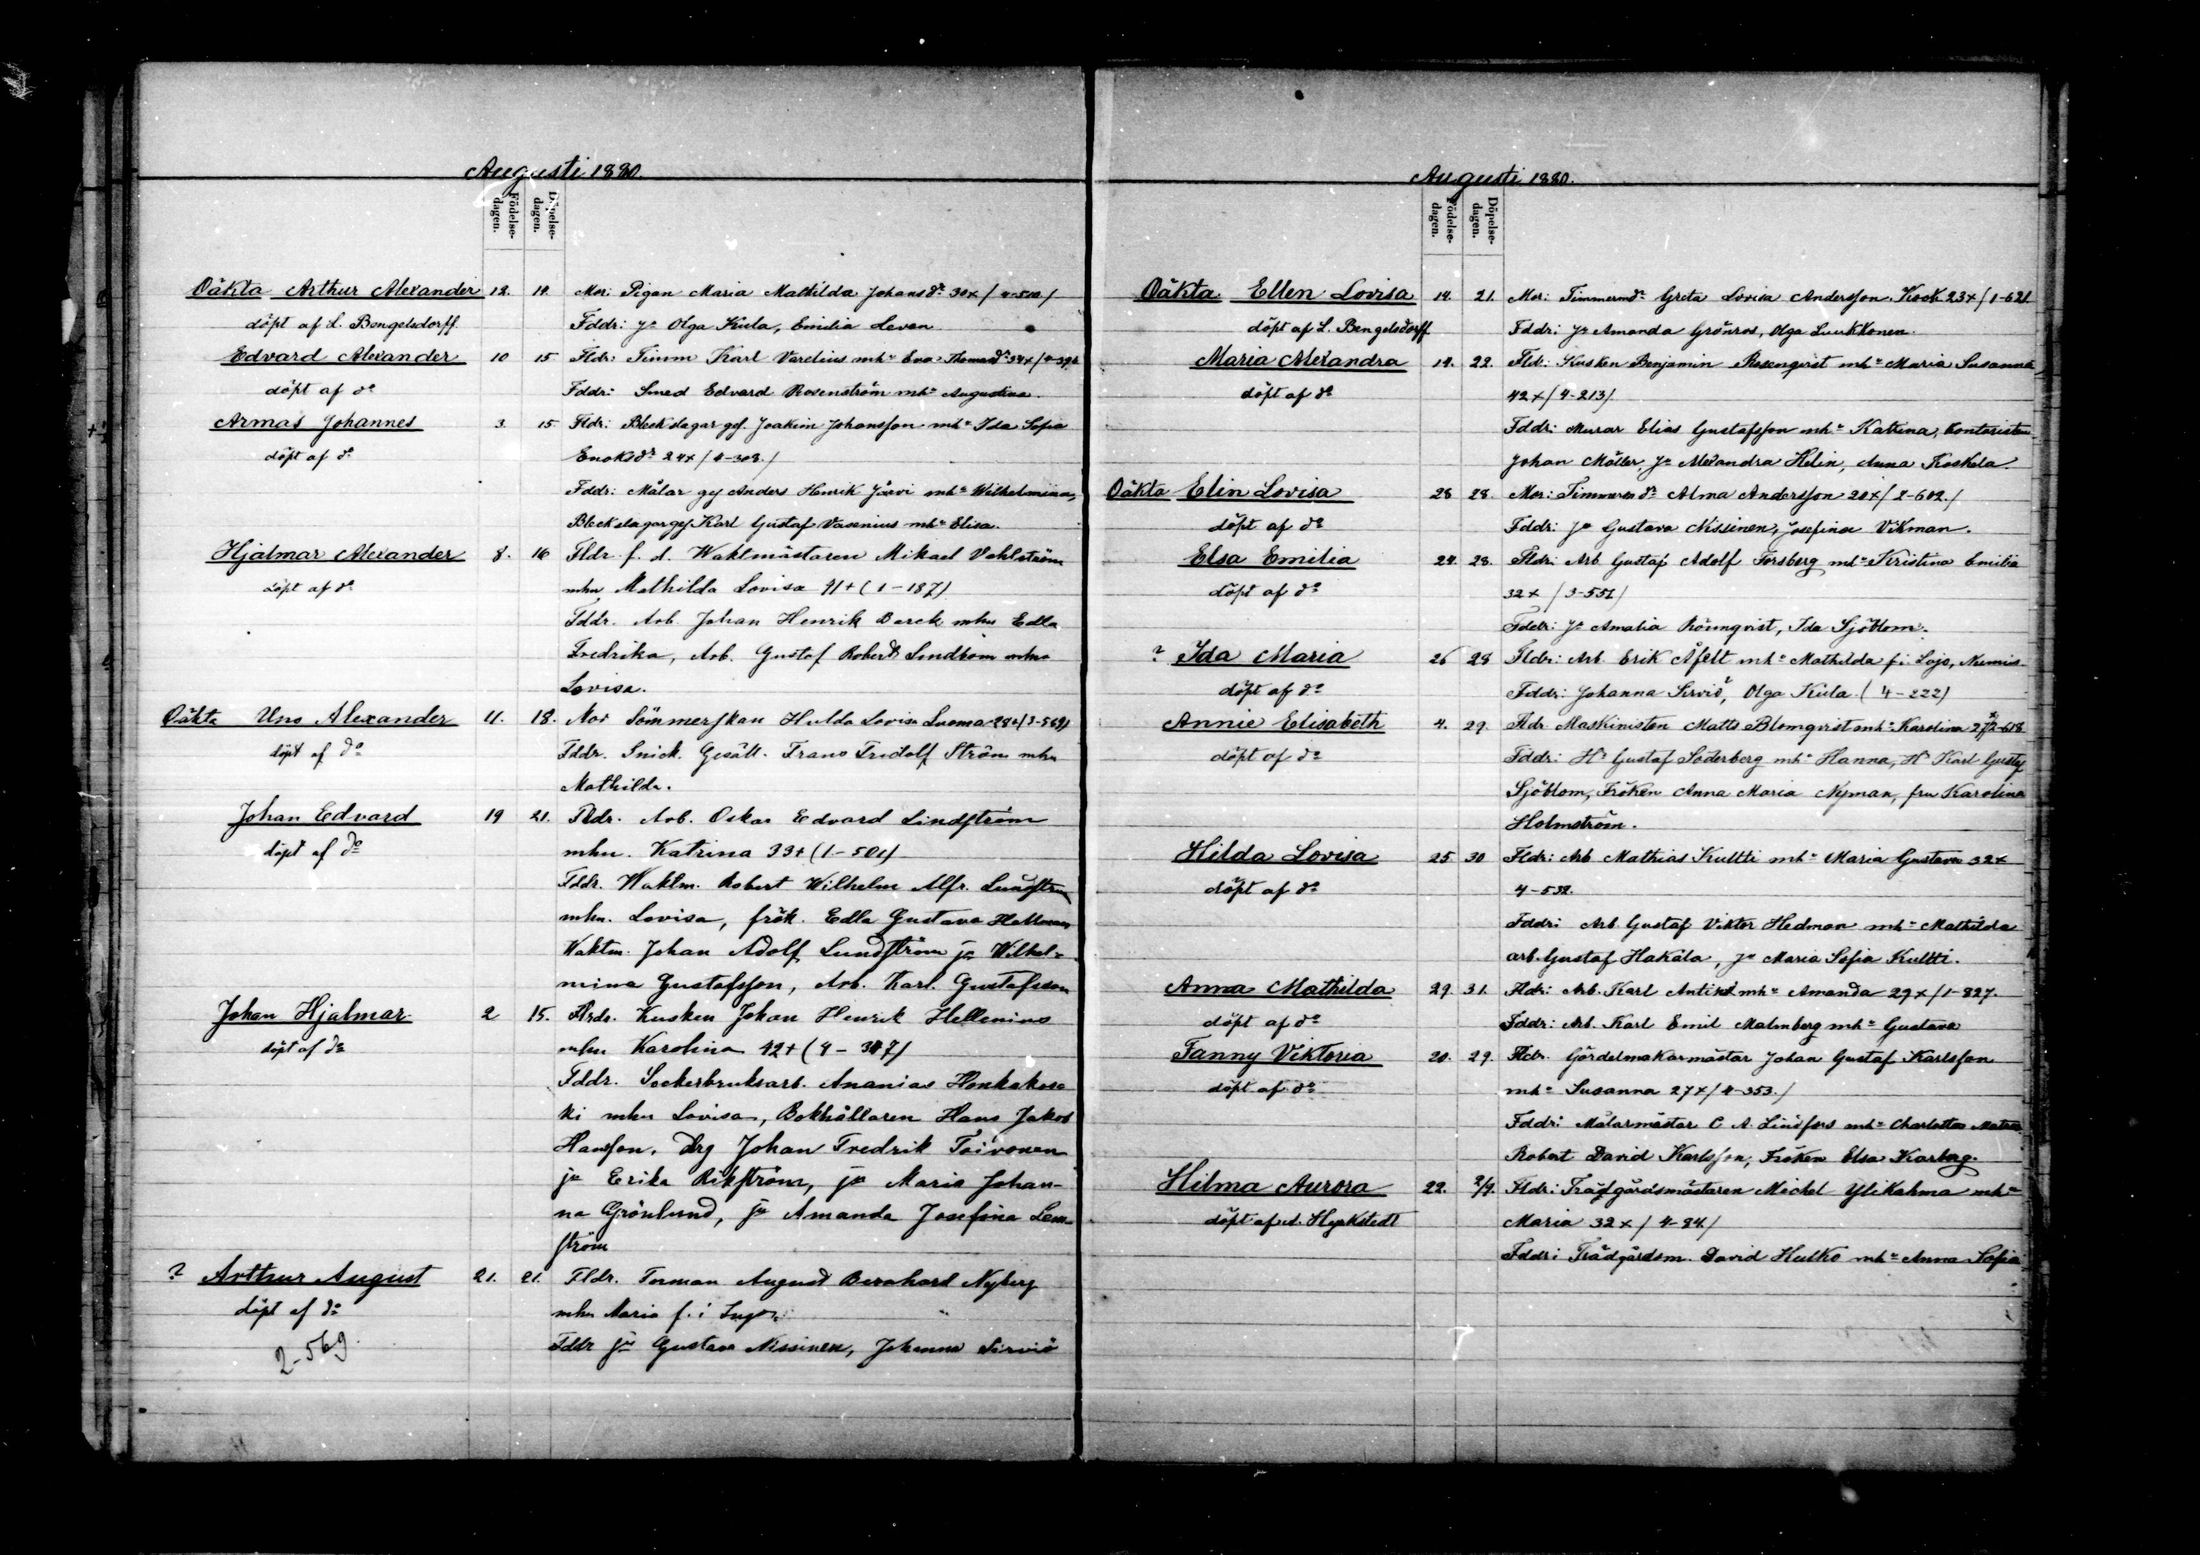 Augusti 1880.
Födelse-dagen.
Döpelse-dagen.
Oäkta Arthur Alexander 12. 14. Mor: Pigan Maria Mathilda Johansdr 30x / 4-510 /
döpt af L. Bengelsdorff. Fddr: jn Olga Kula, Emilia Leven
Edvard Alexander 10 15 Fldr: Timm Karl Vardeius mhn Eva Thomasdr 34x /
döpt af do Fddr: Smed Edvard Rosenström mhn Augustina.
Armas Johannes 3. 15 Fldr: Bleckslagar gef. Joakim Johansson mhn Ida Sofia
döpt af do Enoksdr 24x / 4-308. /
Fddr: Målar gef Anders Henrik Järvi mhn Wilhelmina,
Bleckslagargef Karl Gustaf Vasenius mhn Elisa.
Hjalmar Alexander 8. 16 Fldr f. d. Waktmästaren Mikael Vahlström
döpt af do mhn Mathilda Lovisa 41+ (1-187)
Fddr. Arb. Johan Henrik Berck mhn Edla
Fredrika, Arb. Gustaf Robert Lindbom mhn
Lovisa.
Oäkta Uno Alexander 11. 18. Mor Sömmerskan Hulda Lovisa Luoma 28+ (3-569)
döpt af do Fddr. Snick. Gesäll. Frans Fridolf Ström mhn
Mathilda.
Johan Edvard 19 21. Fldr. Arb. Oskar Edvard Lindström
döpt af do mhn. Katrina 33+ (1-501)
Fddr. Waktm. Robert Wilhelm Alfr. Lundström
mhn. Lovisa, frök. Edla Gustava
Waktm. Johan Adolf Lundström jn Wilhel-
mina Gustafsson, Arb. Karl Gustafsson
Johan Hjalmar 2 15. Fldr. Kusken Johan Henrik Hellenius
döpt af do mhn Karolina 42+ (4-347)
Fddr. Sockerbruksarb. Ananias Honkakos
ki mhn Lovisa, Bokhållaren Hans Jakob
Hansson, Drg Johan Fredrik Toivonen
jn Erika Rikström, jn Maria Johan-
na Grönlund, jn Amanda Josefina Lem-
ström
? Arthur August 21. 21. Fldr. Forman August Bernhard Nyberg
döpt af do mhn Maria f. i Ingo.
2-569. Fddr jn Gustava Nissinen, Johanna Sirviö
Augusti 1880.
Födelse-dagen.
Döpelse-dagen.
Oäkta Ellen Lovisa 14. 21. Mor: Timmermdr Greta Lovisa Andersson Kock 23x / 1-621
döpt af L. Bengelsdorff Fddr: jn Amanda Grönros, Olga Luukkonen.
Maria Alexandra 14. 22. Fldr: Kusken Benjamin Rosenqvist mhn Maria Susanna
döpt af do 42x / 4-213 /
Fddr: Murar Elias Gustafsson mhn Katrina, Kontoristen
Johan Möller, jn Alexandra Helin, Anna Koskela.
Oäkta Elin Lovisa 28 28. Mor: Timmermdr Alma Andersson 20x / 2-602. /
döpt af do Fddr: jn Gustava Nissinen, Josefina Vikman.
Elsa Emilia 24. 28. Fldr: Arb Gustaf Adolf Forsberg mhn Kristina Emilia
döpt af do 32x / 3-551 /
Fddr: jn Amalia Rönnqvist, Ida Sjöblom.
? Ida Maria 26 28 Fldr: Arb Erik Åfelt mhn Mathilda f. i Lojo, Nummis
döpt af do Fddr: Johanna Sirviö, Olga Kula. (4-222)
Annie Elisabeth 4. 29. Fldr Maskinisten Matts Blomqvist mhn Karolina 27x/2-618
döpt af do Fddr: Hr Gustaf Söderberg mhn Hanna, Hr Karl Gustaf
Sjöblom, Fröken Anna Maria Nyman, fru Karolina
Holmström.
Hilda Lovisa 25 30 Fldr: Arb Mathias Kultti mhn Maria Gustava 32x
döpt af do 4-532.
Fddr: Arb Gustaf Viktor Hedman mhn Mathilda
arb. Gustaf Hakala, jn Maria Sofia Kultti.
Anna Mathilda 29 31. Fldr: Arb. Karl Antikst mhn Amanda 29x / 1-827.
döpt af do Fddr: Arb. Karl Emil Malmberg mhn Gustava
Fanny Viktoria 20. 29. Fldr. Gördelmakarmästar Johan Gustaf Karlsson
döpt af do mhn Susanna 27x / 4-353. /
Fddr: Målarmästar C A. Lindfors mhn Charlotta
Robert David Karlsson, Fröken Elsa Karberg.
Hilma Aurora 22. 2/9. Fldr: Trädgårdsmästaren Michel Ylikahma mhn
döpt af A. Hyrkstedt Maria 32x / 4-84 /
Fddr: Trädgårdsm. David Hutko mhn Anna Sofia